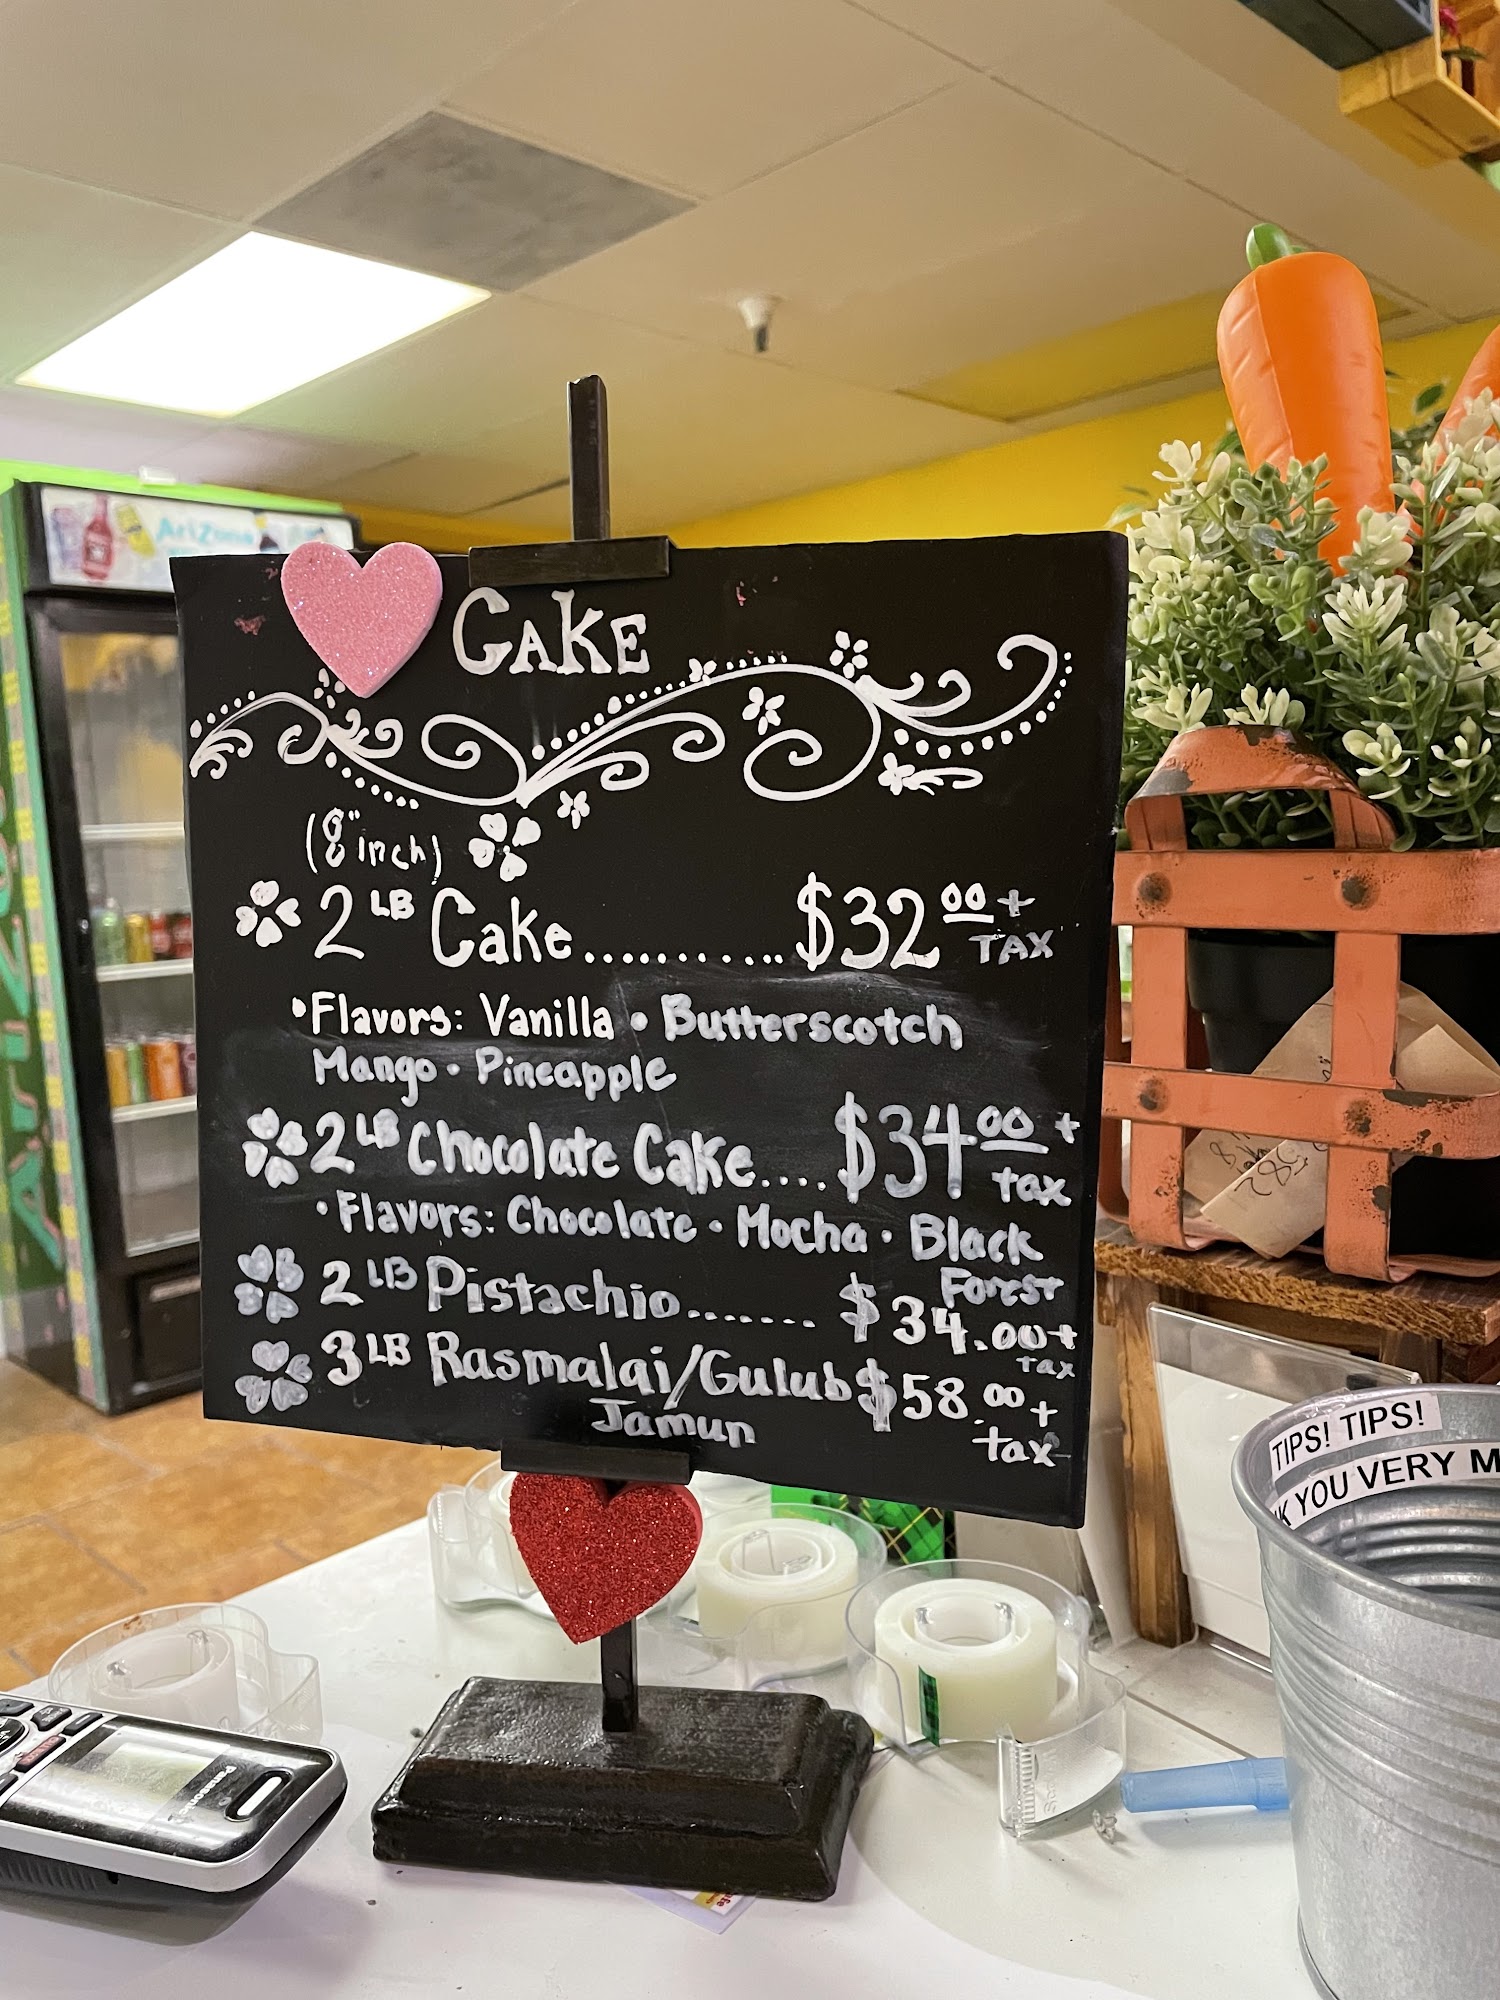 AriZona
CAKE
(8" inch)
2 LB Cake........... $32.00 + TAX
• Flavors: Vanilla • Butterscotch
Mango • Pineapple
2 LB Chocolate Cake.... $34.00 + tax
• Flavors: Chocolate • Mocha • Black
Forest
2 LB Pistachio....... $34.00 + tax
3 LB Rasmalai/Gulub $58.00 + tax
Jamun
TIPS! TIPS!
YOU VERY M
Panasonic